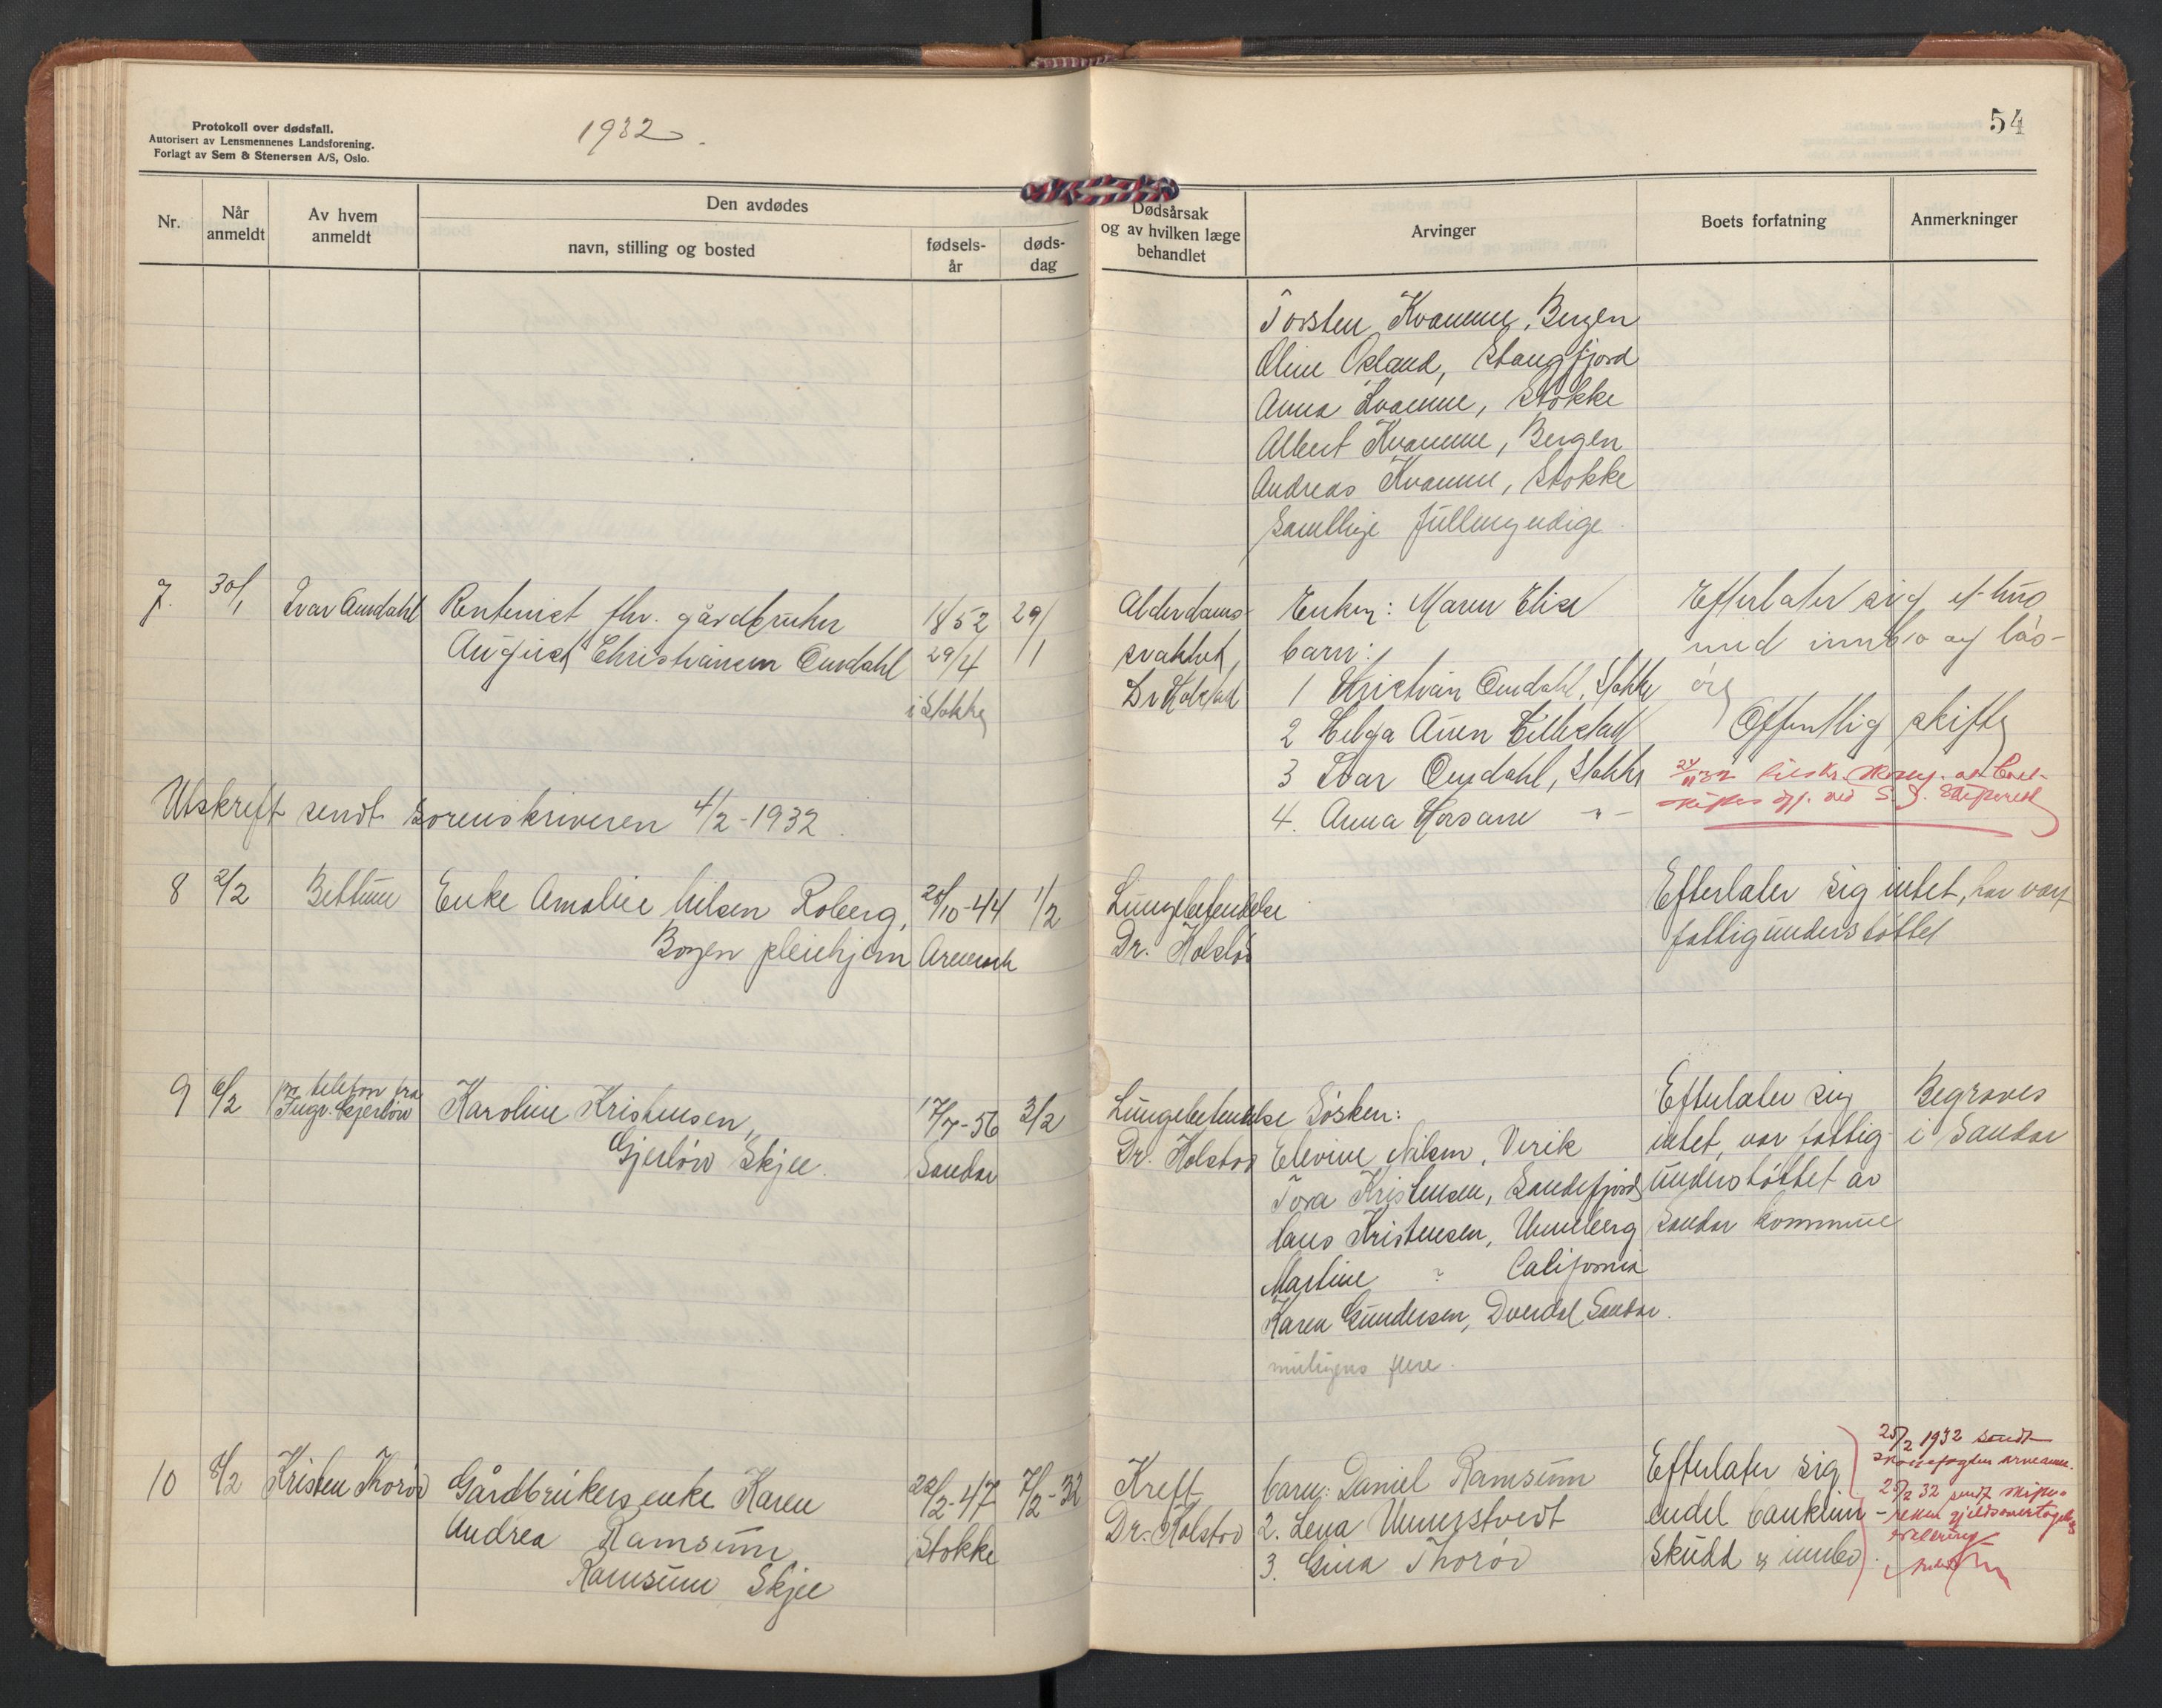 Protokoll over dødsfall.
Autorisert av Lensmennenes Landsforening.
Forlagt av Sem & Stenersen A/S, Oslo.
1932
54
Nr.
Når anmeldt
Av hvem anmeldt
Den avdødes
navn, stilling og bosted
fødsels-år
døds-dag
Dødsårsak og av hvilken læge behandlet
Arvinger
Boets forfatning
Anmerkninger
Torsten Kvamme, Bergen
Oline Osland, Stangfjord
Anna Kvamme, Stokke
Albert Kvamme, Bergen
Andreas Kvamme, Stokke
Samtlige fullmyndige.
7. 30/1 Ivar Omdahl
Rentenist fhv. gårdbruker
August Christiansen Omdahl
1852
29/4
i Stokke
29/1
Alderdoms-
svakhet,
Dr Holstad
Enken: Maren Elise
barn:
1 Kristian Omdahl, Stokke
2 Helga Auen Tillestad
3 Ivar Omdahl, Stokke
4. Anna Horsane -"-
Efterlater sig et hus
med innbo og løs-
øre
Offentlig skifte
Utskrift sendt Sorenskriveren 4/2-1932.
8 2/2 Bettum
Enke Amalie Nilsen Roberg,
Bogen pleiehjem
28/10-44
1/2
Lungebetendelse
Dr. Holstad
Efterlater sig intet, har vært
fattigunderstøttet
9 6/2 pr telefon fra
Ingv. Gjerløw
Karoline Kristensen,
Gjerløw Skjee.
17/7-56
Sandar
3/2
Lungebetendelse
Dr. Holstad
Søsken:
Elevine Nilsen, Virik
Tora Kristensen, Sandefjord
Hans Kristensen, Unneberg
Martine " California
Karen Gundersen, Dverdal Sandar.
muligens flere.
Efterlater sig
intet, var fattig-
understøttet av
Sandar kommune
Begraves
i Sandar
10 8/2 Kristen Thorød
Gårdbrukers enke Karen
Andrea Ramsum
Ramsum Skjee
22/2-47
Stokke
7/2-32
Kreft
Dr. Holstad
barn: Daniel Ramsum
2. Lena Unnerstvedt
3. Gina Thorød
Efterlater sig
endel bankinn-
skudd & innbo.
25/2 1932 sendt
25/2 32 sendt skifte-
retten gjeldsovertagelses